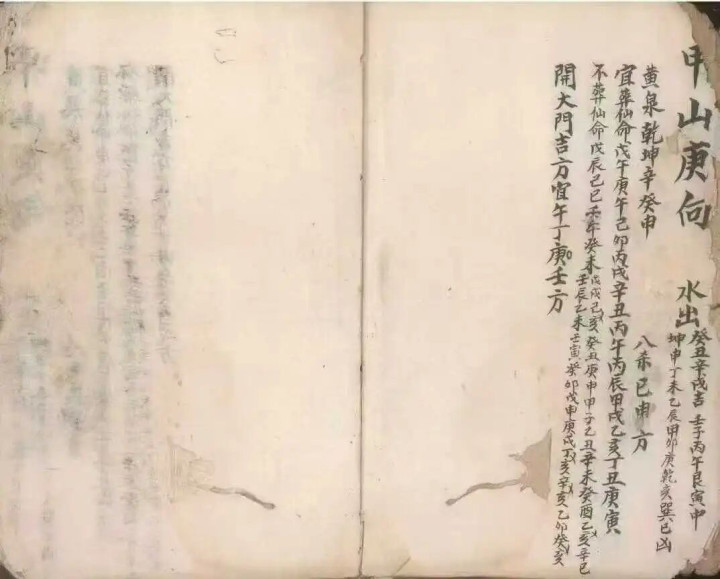 甲山庚向 水出
癸丑辛戌吉 壬子丙午艮寅申
坤申丁未乙辰甲卯庚乾亥巽巳凶
黄泉乾坤辛癸申 八杀巳申方
宜葬仙命戊午庚午己卯丙戌辛丑丙午丙辰甲戌乙亥丁丑庚寅
不葬仙命戊辰己巳壬午癸未戊戌己亥癸丑庚申甲子乙丑辛未癸酉乙亥辛巳
壬辰乙未壬寅癸卯戊申庚戌丁亥辛亥乙卯癸亥
開大門吉方宜午丁庚壬方